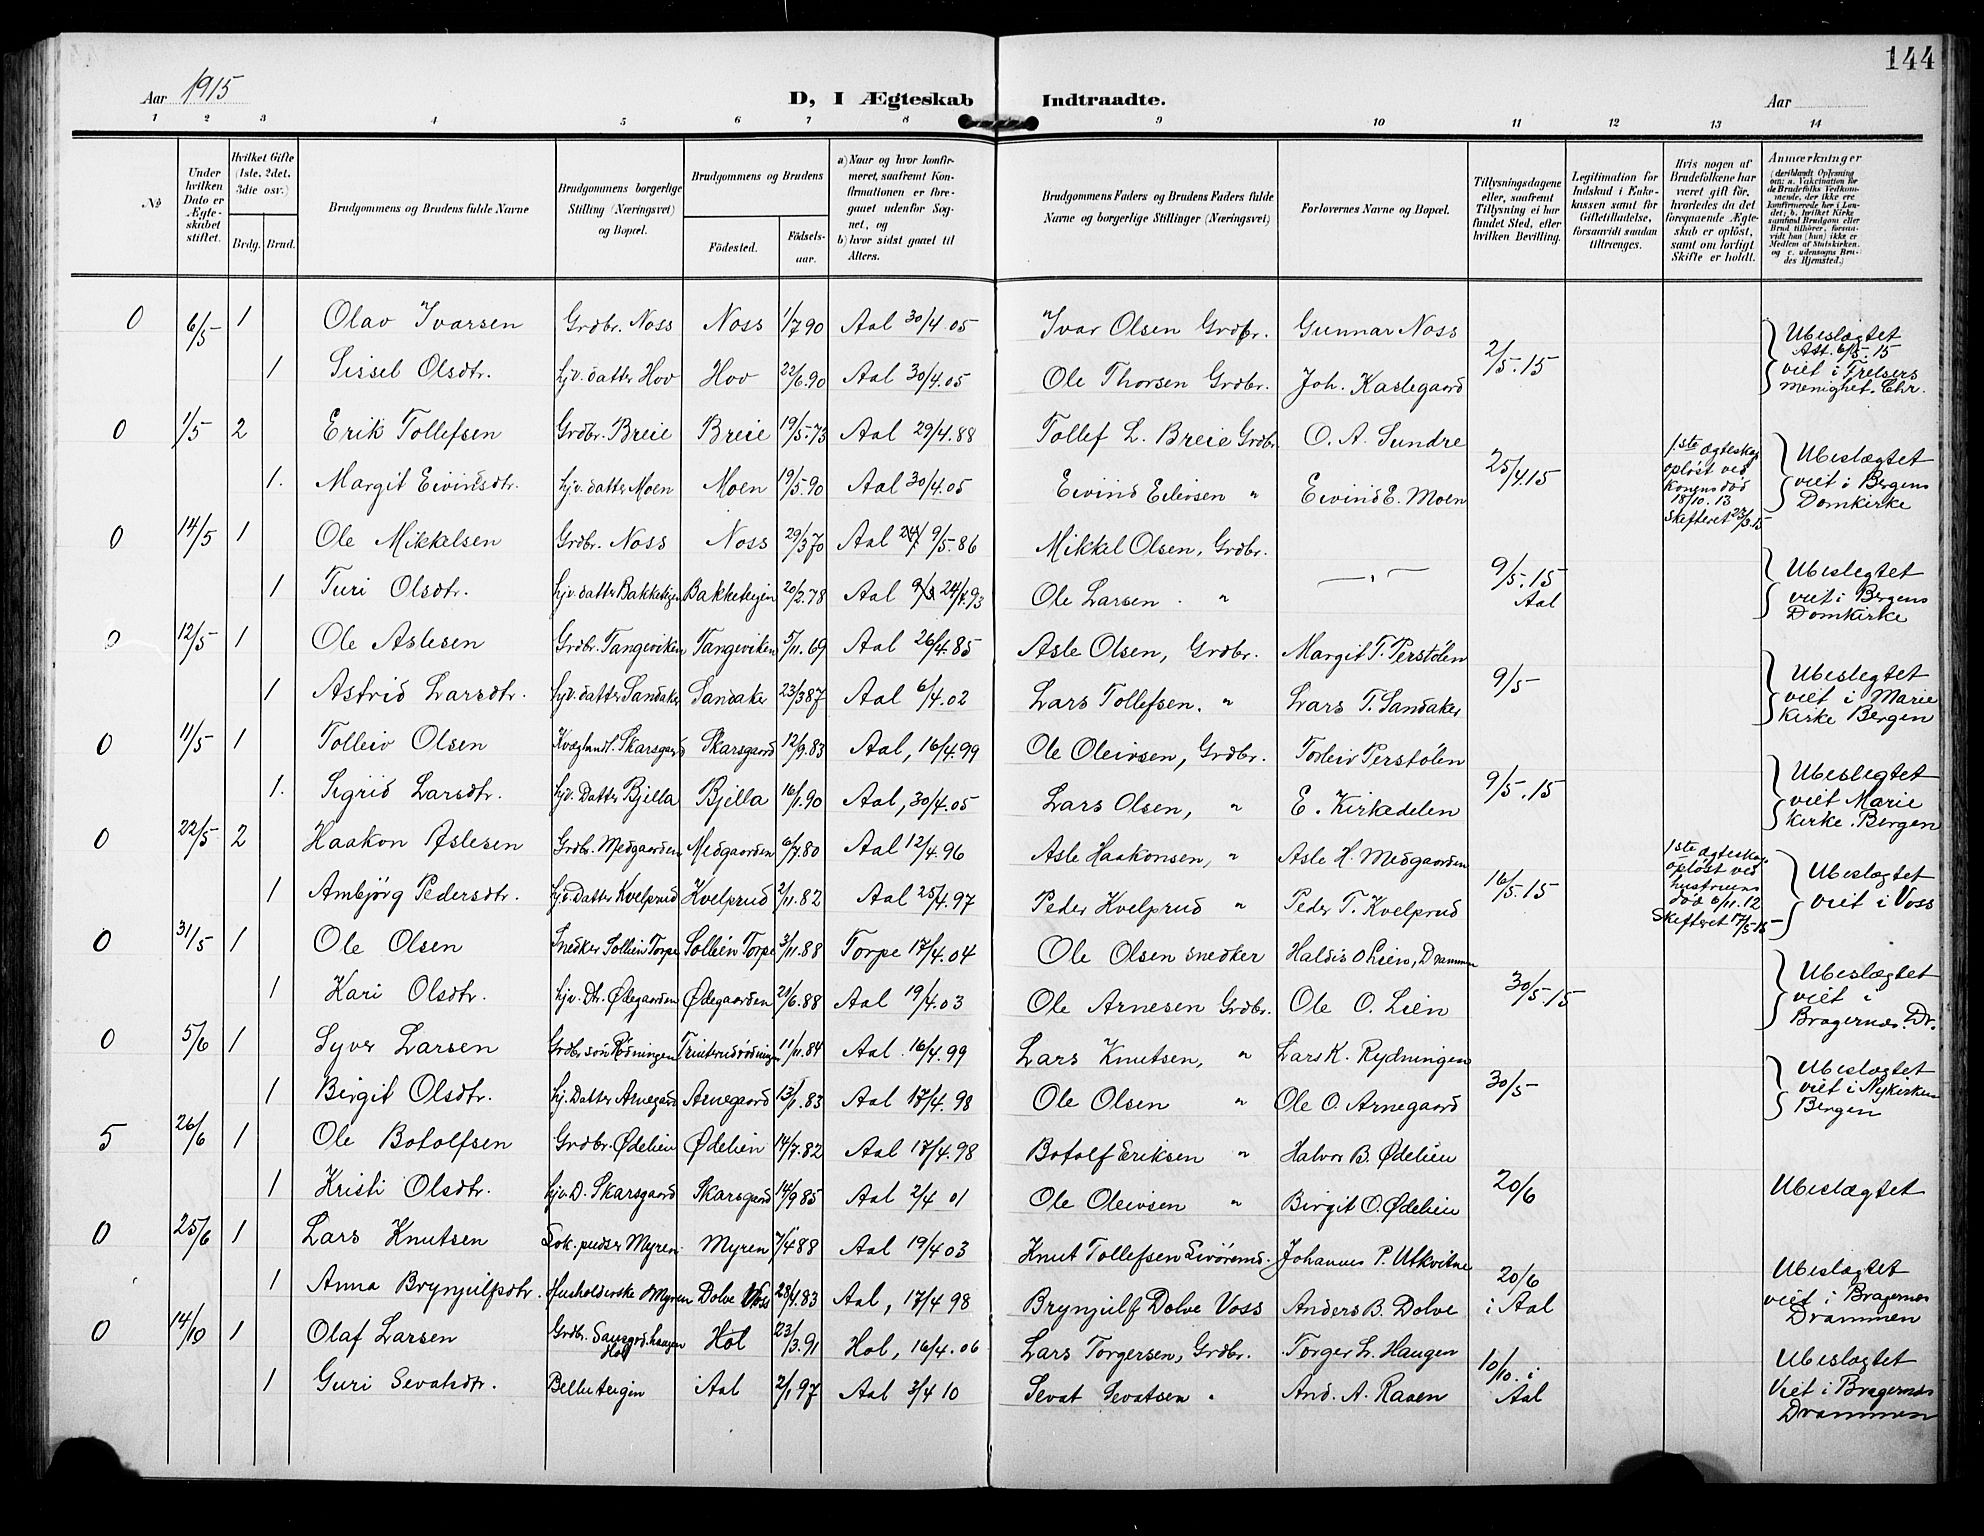 144
Aar 1915 D, I Ægteskab Indtraadte. Aar
1 2 3 4 5 6 7 8 9 10 11 12 13 14
No
Under hvilken Dato er Ægteskabet stiftet.
Hvilket Gifte (1ste, 2det, 3die osv.)
Brdg. Brud.
Brudgommens og Brudens fulde Navne
Brudgommens borgerlige Stilling (Næringsvei) og Bopæl.
Brudgommens og Brudens
Fødested. Fødselsaar.
a) Naar og hvor konfirmeret, saafremt Konfirmationen er foregaaet udenfor Sognet, og
b) hvor sidst gaaet til Alters.
Brudgommens Faders og Brudens Faders fulde Navne og borgerlige Stillinger (Næringsvei)
Forlovernes Navne og Bopæl.
Tillysningsdagene eller, saafremt Tillysning ei har fundet Sted, efter hvilken Bevilling.
Legitimation for Indskud i Enkekassen samt for Giftetilladelse, forsaavidt saadan tiltrænges.
Hvis nogen af Brudefolkene har været gift før, hvorledes da det foregaaende Ægteskab er opløst, samt om lovligt Skifte er holdt.
Anmærkninger (deriblandt Oplysning om: a. Vakcination for de Brudefolks Vedkommende, der ikke ere konfirmerede her i Landet; b. hvilket Kirkesamfund Brudgom eller Brud tilhører, forsaavidt han (hun) ikke er Medlem af Statskirken. og c. udensogns Brudes Hjemsted.)
0 6/5 1 Olav Ivarsen Grdbr. Noss Noss 1/7 90 Aal 30/4.05 Ivar Olsen Grdbr. Gunnar Noss 2/5.15 Ubeslægtet Att. 6/5.15 viet i Frelsers menighet. Chr.
1 Sissel Olsdtr. hjv. datter Hov Hov 22/6.90 Aal 30/4.05 Ole Thorsen Grdbr. Joh. Kaslegaard
0 1/5 2 Erik Tollefsen Grdbr. Breie Breie 19/5.73 Aal 29/4.88 Tollef L. Breie Grdbr. O. A. Sundre 25/4.15 1.ste ægteskap opløst ved konens død 18/10.13 Skifteret 23/3.15 Ubeslægtet viet i Bergens Domkirke
1. Margit Eivindsdtr. hjv. datter Moen Moen 19/5.90 Aal 30/4.05 Eivind Eilevsen " Eivind E. Moen
0 14/5 1 Ole Mikkelsen Grdbr. Noss Noss 29/3 70 Aal 9/5.86 Mikkel Olsen, Grdbr. — " — 9/5.15 Aal Ubeslegtet viet i Bergens Domkirke
1 Turi Olsdtr. hjv. datter Bakketeigen Bakketeigen 20/2.78 Aal 24/4.93 Ole Larsen "
0 12/5 1 Ole Aslesen Grdbr. Tangeviken Tangeviken 5/11.69 Aal 26/4.85 Asle Olsen, Grdbr. Margit T. Perstölen 9/5 Ubeslegtet viet i Marie kirke Bergen
1 Astrid Larsdtr. hjv. datter Sandaker Sandaker 23/3 87 Aal 6/4.02 Lars Tollefsen. " Lars T. Sandaker
0 11/5 1 Tolleiv Olsen Kvæghandl. Skarsgaard Skarsgaard 12/9.83 Aal, 16/4.99 Ole Oleivsen, Grdbr. Torleiv Perstölen 9/5.15 Ubeslegtet viet Marie kirke. Bergen
1. Sigrid Larsdtr. hjv. Datter Bjella Bjella 16/1.90 Aal, 30/4.05 Lars Olsen, " E. Kirkedelen
0 22/5 2 Haakon Aslesen Grdbr. Medgaarden Medgaarden 6/7.80 Aal 12/4.96 Asle Haakonsen, " Asle H. Medgaarden 16/5.15 1ste ægteskap opløst ved hustruens død 6/11.12 Skifteret 17/5-15 Ubeslægtet viet i Voss
1 Ambjörg Pedersdtr. hjv. Datter Kvelprud Kvelprud 2/11.82 Aal 25/4.97 Peder Kvelprud " Peder T. Kvelprud
0 31/5 1 Ole Olsen Snedker Sollien Torpe Sollien Torpe 3/11.88 Torpe 17/4.04 Ole Olsen snedker Halvor O Lien, Drammen 30/5.15 Ubeslægtet viet i Bragernæs. Dr.
1 Kari Olsdtr. hjv. Dtr. Ødegaarden Ødegaarden 21/6.88 Aal 19/4.03 Ole Arnesen Grdbr. Ole O. Lien
0 5/6 1 Syver Larsen Grdbr sön Rödningen 11/11.84 Aal 16/4.99 Lars Knutsen, " Lars K. Rydningen 30/5 Ubeslægtet viet i Nykirken Bergen
1 Birgit Olsdtr. hj. Datter Arnegaard Arnegaard 13/1.83 Aal 17/4.98 Ole Olsen " Ole O. Arnegaard
5 26/6 1 Ole Botolfsen Grdbr. Ødelien Ødelien 14/7.82 Aal 17/4.98 Botolf Eriksen " Halvor B. Ødelien 20/6 Ubeslægtet
1 Kristi Olsdtr. hjv. D. Skarsgaard Skarsgaard 14/9 85 Aal 2/4 01 Ole Oleivsen " Birgit O. Ødelien
0 25/6 1 Lars Knutsen Lok. pudser Myren Myren 7/4 88 Aal 19/4 03 Knut Tollefsen Johannes P. Utkvitne 20/6 i Aal Ubeslægtet viet i Bragernes Drammen
1 Anna Brynjulfsdtr. Husholderske Myren Dolve Voss 28/1.83 Aal, 17/4 98 Brynjulf Dolve Voss Anders B. Dolve
0 14/10 1 Olaf Larsen Grdbr. Sausgrd.haugen Hol Hol 23/3.91 Hol, 16/4.06 Lars Torgersen, Grdbr. Torger L. Haugen 10/10. i Aal Ubeslægtet Viet i Bragernæs Drammen
1 Guri Sevatsdtr. Belleteigen Aal 2/1 97 Aal 3/4 10 Sevat Sevatsen " And. A. Raaen